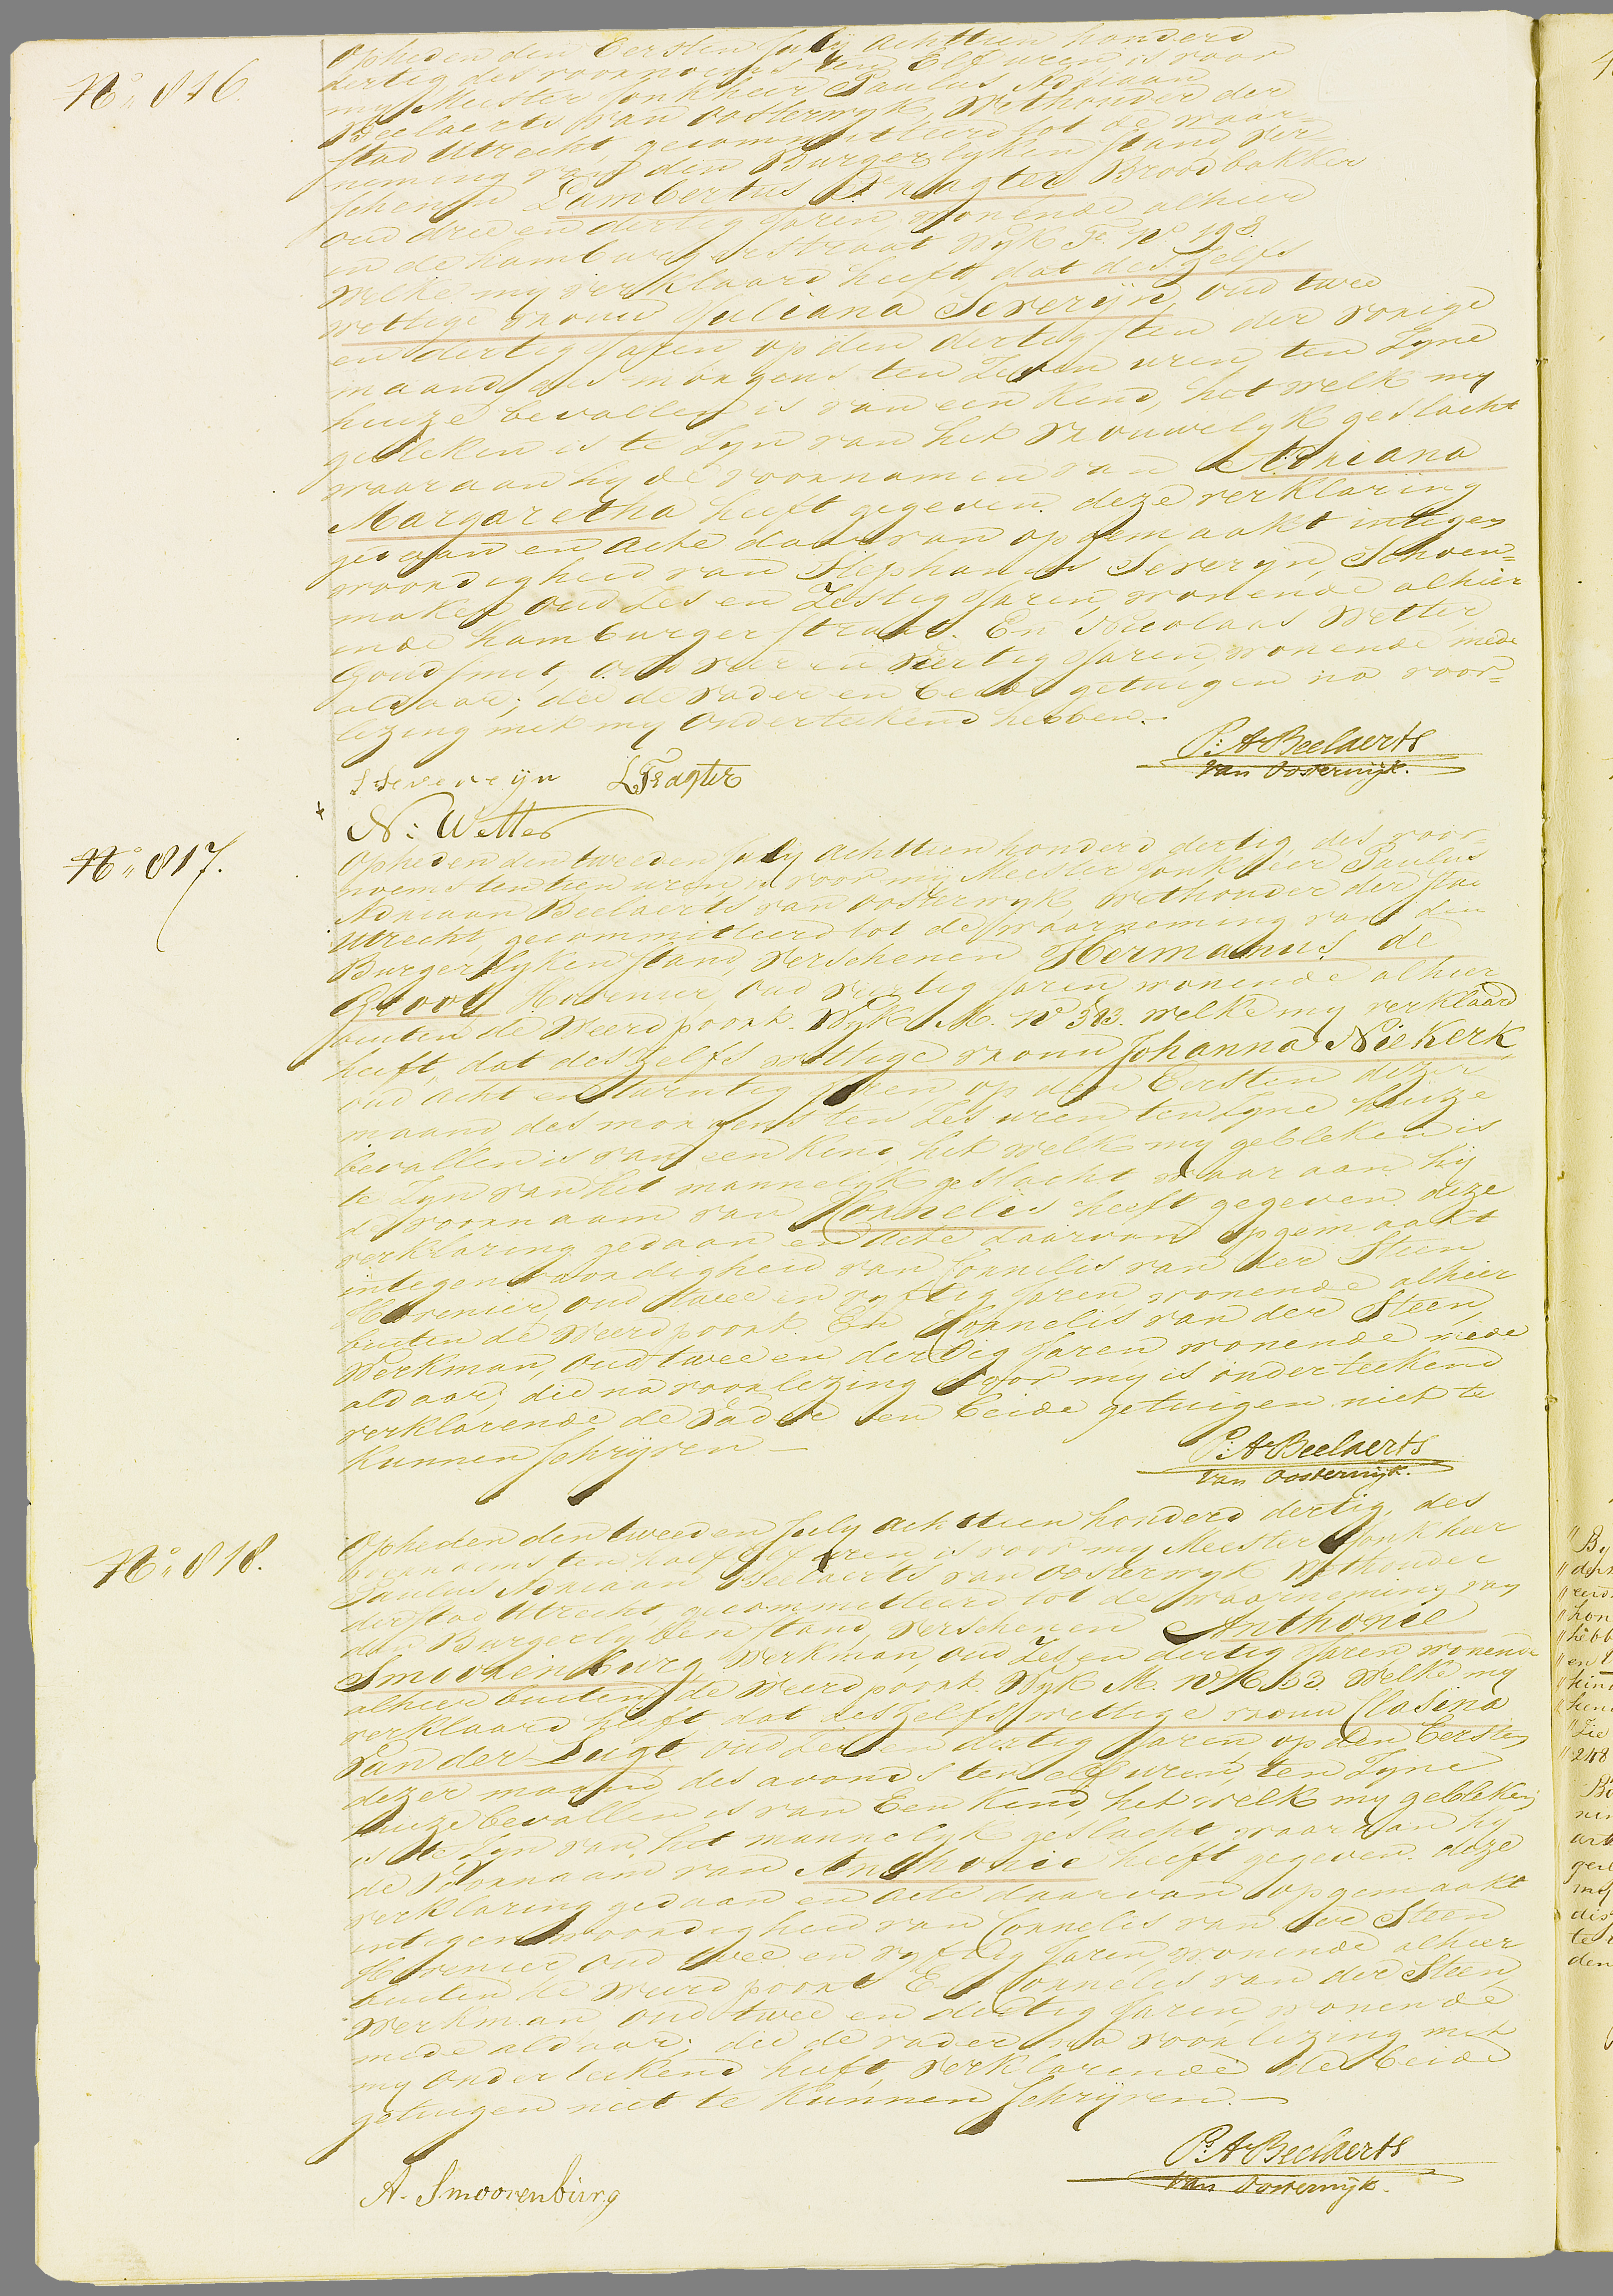 No. 816.
Opheden den Eersten July achttien honderd
dertig des voornoens ten Elf uren is voor
my Meester Jonkheer Paulus Adriaan
Beelaerts van Oosterwyk, Wethouder der
stad Utrecht, gecommitteerd tot de waar=
neming van den Burgerlyken stand, ver=
schenen Lambertus Fragter Broodbakker
oud drie en dertig Jaren, wonende alhier
in de hamburgerstraat Wyk F. No.
Welke my verklaard heeft, dat deszelfs
wettige vrouw Juliana Severijn, oud twee
en dertig Jaren, op den dertigsten der vorige
maand des morgens ten Zeven uren, ten Zyne
huize bevallen is van een Kind, het welk my
gebleken is te Zyn van het vrouwelyk geslacht
waaraan hy de voornamen van Adriana
Margaretha heeft gegeven. deze verklaring
gedaan en acte daarvan opgemaakt integen
woordigheid van Stephanus Severyn, Schoen=
maker oud Zes en Zestig Jaren, wonende alhier
in de hamburgerstraat. En Nicolaas Wetter
Goudsmit, oud vier en veertig Jaren, wonende mede
aldaar; die de vader en beide getuigen na voor=
lezing met my onderteekend hebben.-
S Severijn LFragter
P: A Beelaerts
van Oosterwijk.
N: Wetter
No. 817.
Opheden den tweeden July achttien honderd dertig, des voor=
noens ten tien uren is voor my Meester Jonkheer Paulus
Adriaan Beelaerts van Oosterwyk, wethouder der stad
Utrecht, gecommitteerd tot de waarneming van den
Burgerlyken stand, verschenen Hermanus de
Groot Hovenier, oud veertig Jaren wonende alhier
buiten de Weerdpoort. Wyk M. No 313. welke my verklaard
heeft, dat deszelfs wettige vrouw Johanna Niekerk
oud acht en twintig Jaren op den Eersten dezer
maand, des morgens ten Zes uren, ten Zyne huize
bevallen is van een Kind, het welk my gebleken is
te Zyn van het mannelyk geslacht waar aan hij
de voornaam van Kornelis heeft gegeven. deze
verklaring gedaan en acte daarvan opgemaakt
integenwoordigheid van Cornelis van der Steen
Hovenier, oud twee en vyftig Jaren wonende alhier
buiten de Weerdpoort. En Cornelis van der Steen,
Werkman, oud twee en dertig Jaren, wonende mede
aldaar; die na voorlezing door my is onderteekend
verklarende de Vader en beide getuigen niet te
Kunnen schryven -
P: A Beelaerts
van Oosterwijk.
No. 818.
Opheden den tweeden July achttien honderd dertig, des
voornoens ten half elf uren is voor my Meester Jonkheer
Paulus Adriaan Beelaerts van Oosterwyk Wethouder
der stad Utrecht, gecommitteerd tot de waarneming van
den Burgerlyken stand, verschenen Anthonie
Smoorenburg, Werkman, oud Zes en dertig Jaren wonende
alhier buiten de Weerdpoort. Wyk M. No Welke my
verklaard heeft dat deszelfs wettige vrouw Clasina
Van der Lugt, oud en dertig Jaren, op den Eersten
dezer maand, des avonds ten elf uren, ten Zyne
huize bevallen is van Een Kind het welk my gebleken
is te Zyn van het mannelyk geslacht waaraan hy
de voornaam van Anthonie heeft gegeven. deze
verklaring gedaan en acte daarvan opgemaakt
integenwoordigheid van Cornelis van der Steen
Hovenier oud twee en vyftig Jaren, wonende alhier
buiten de weerdpoort En Cornelis van der Steen,
Werkman, oud twee en dertig Jaren, wonende
mede aldaar; die de vader na voorlezing met
my onderteekend heeft, verklarende de beide
getuigen niet te Kunnen schryven. -
P: A Beelaerts
van Oosterwijk.
A. Smoorenburg